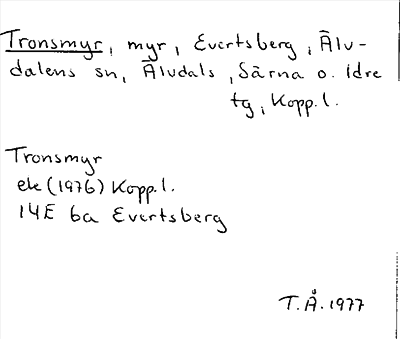 Tronsmyr, myr, Evertsberg, Älv-
dalens sn, Älvdals, Särna o. Idre
tg, Kopp. l.
Tronsmyr
ek (1976) Kopp. l.
14E 6a Evertsberg
T. Å. 1977